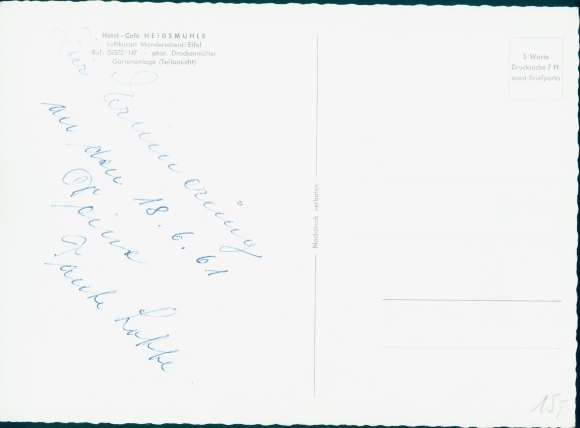 Hotel - Café HEIDSMÜHLE
Luftkurort Manderscheid/Eifel
Ruf. 06572/147 - phot. Drockenmüller
Gartenanlage (Teilansicht)
5 Worte
Drucksache 7 Pf.
sonst Briefporto
Nachdruck verboten
Zur Erinnerung
an den 18.6.61
15,-